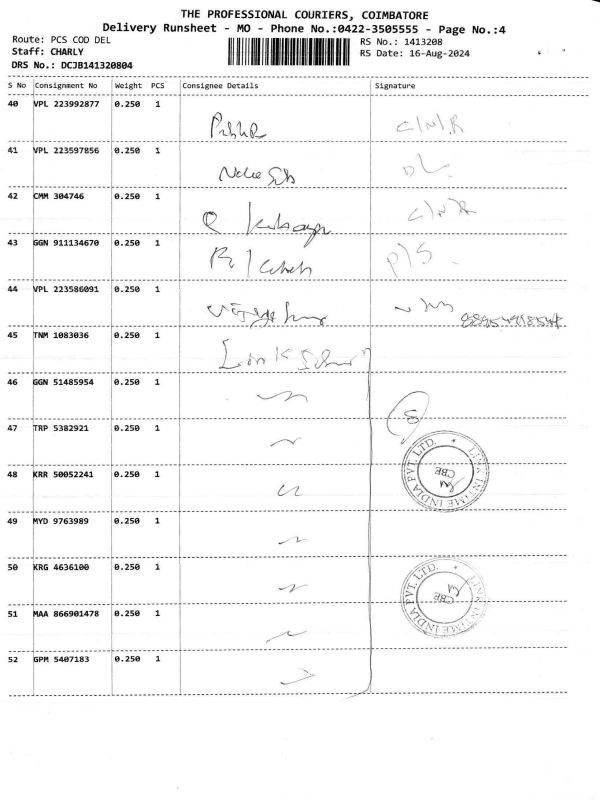 THE PROFESSIONAL COURIERS, COIMBATORE
Delivery Runsheet - MO - Phone No.:0422-3505555 - Page No.:4
Route: PCS COD DEL
RS No.: 1413208
Staff: CHARLY
RS Date: 16-Aug-2024
DRS No.: DCJB141320804
S No Consignment No Weight PCS Consignee Details Signature
40 VPL 223992877 0.250 1
C/N/R
41 VPL 223597856 0.250 1
42 CMM 304746 0.250 1
C/N/R
43 GGN 911134670 0.250 1
P/S
44 VPL 223586091 0.250 1
45 TNM 1083036 0.250 1
Link
46 GGN 51485954 0.250 1
47 TRP 5382921 0.250 1
48 KRR 50052241 0.250 1
LINK INTIME INDIA PVT. LTD. *
CBE
49 MYD 9763989 0.250 1
50 KRG 4636100 0.250 1
51 MAA 866901478 0.250 1
LINK INTIME INDIA PVT. LTD. *
CBE
52 GPM 5407183 0.250 1